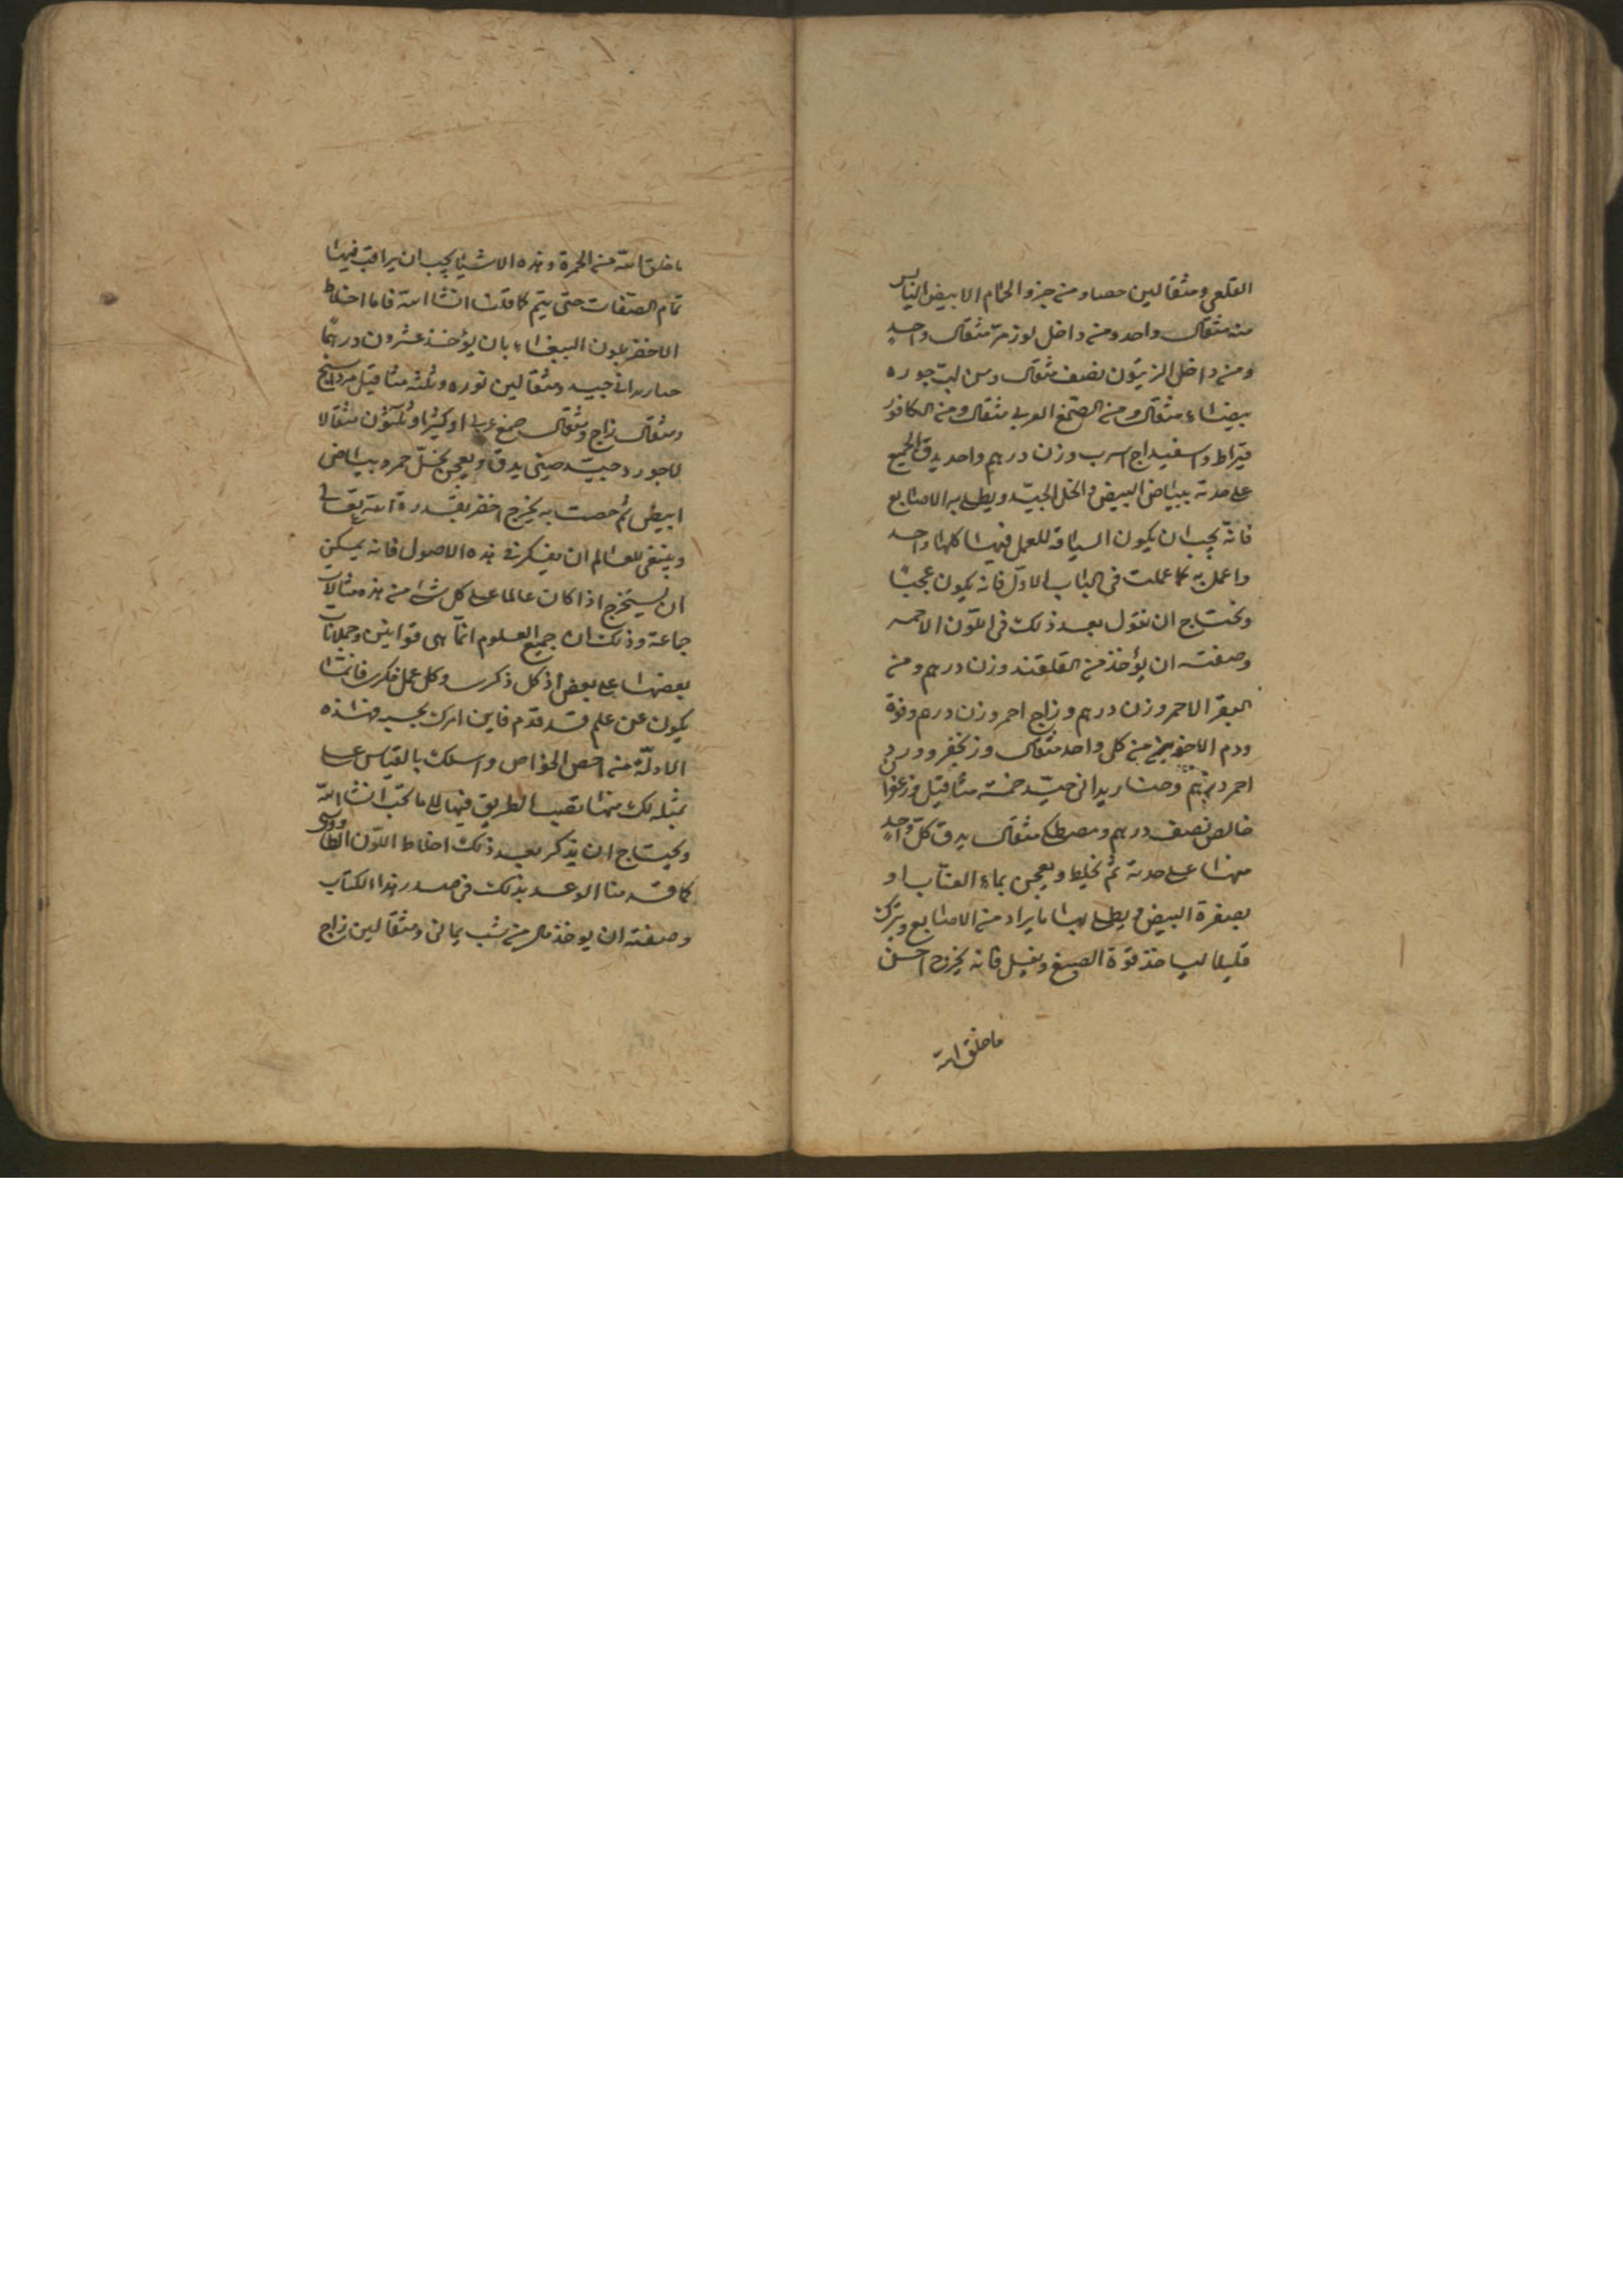 القلعى ومثقالين حصا ومن جزو الحمام الابيض اليابس
منه مثقال واحد ومن داخل لوز مر مثقال واحد
ومن داخل الزيتون نصف مثقال ومن لب جوره
بيضاء مثقال ومن الصمغ العربى مثقال ومن الكافور
قيراط واسفيداج اسرب وزن درهم واحد يدق الجميع
على حدته ببياض البيض والخل الجيد ويطلى به الاصابع
فانه يجب ان يكون السياقه للعمل فيها كلها واحد
واعمل به كما عملت فى الباب الاول فانه يكون عجبًا
ونحتاج ان نقول بعد ذلك فى اللون الاحمر
وصفته ان يؤخذ من القلقند وزن درهم ومن
البقر الاحمر وزن درهم وزاج احمر وزن درهم وفوة
ودم الاخوين من كل واحد مثقال وزنجفر وورد
احمر درهم وحنا ريدانى جيد خمسة مثاقيل وزعفران
خالص نصف درهم ومصطكى مثقال يدق كل واحد
منها على حدته ثم يخلط ويعجن بماء العناب او
بصفرة البيض ويطلى بها ما يراد من الاصابع ويترك
قليلا لياخذ قوة الصبغ ويغسل فانه يخرج احسن
ما خلق الله
ما خلق الله من الحمرة وهذه الاشيا يجب ان يراقب فيها
تمام الصفات حتى يتم كما قلنا انشا الله فاما اخلاط
الاخضر بلون الببغاء بان يؤخذ عشرون درهمًا
حنا ريدانى جيد ومثقالين نوره وثلثه مثاقيل مرداسنج
ومثقال زاج ومثقال صمغ عربى او كثيرا وثلثون مثقالا
لاجورد جيد صينى يدق ويعجن بخل خمر وبياض
ابيض ثم خصت به يخرج اخضر بقدرة الله تعالى
وينبغى للعالم ان يفكر فى هذه الاصول فانه يمكن
ان يستخرج اذا كان عالما على كل شى من هذه مثالات
جماعة وذلك ان جميع العلوم انما هى قوانين وجملات
بعضها على بعض اذ كل ذكرى وكل عمل فكرى فانما
يكون عن علم قد تقدم فابن امرك بحسب هذه
الادلة من اخص الخواص واسلك بالقياس على
مثله لك منها تصب الطريق فيها الى ما تحب انشا الله
ونحتاج ان نذكر بعد ذلك اخلاط اللون الطاووسى
كما قدمنا الوعد بذلك فى صدر هذا الكتاب
وصفته ان يوخذ من شب يمانى ومثقالين زاج